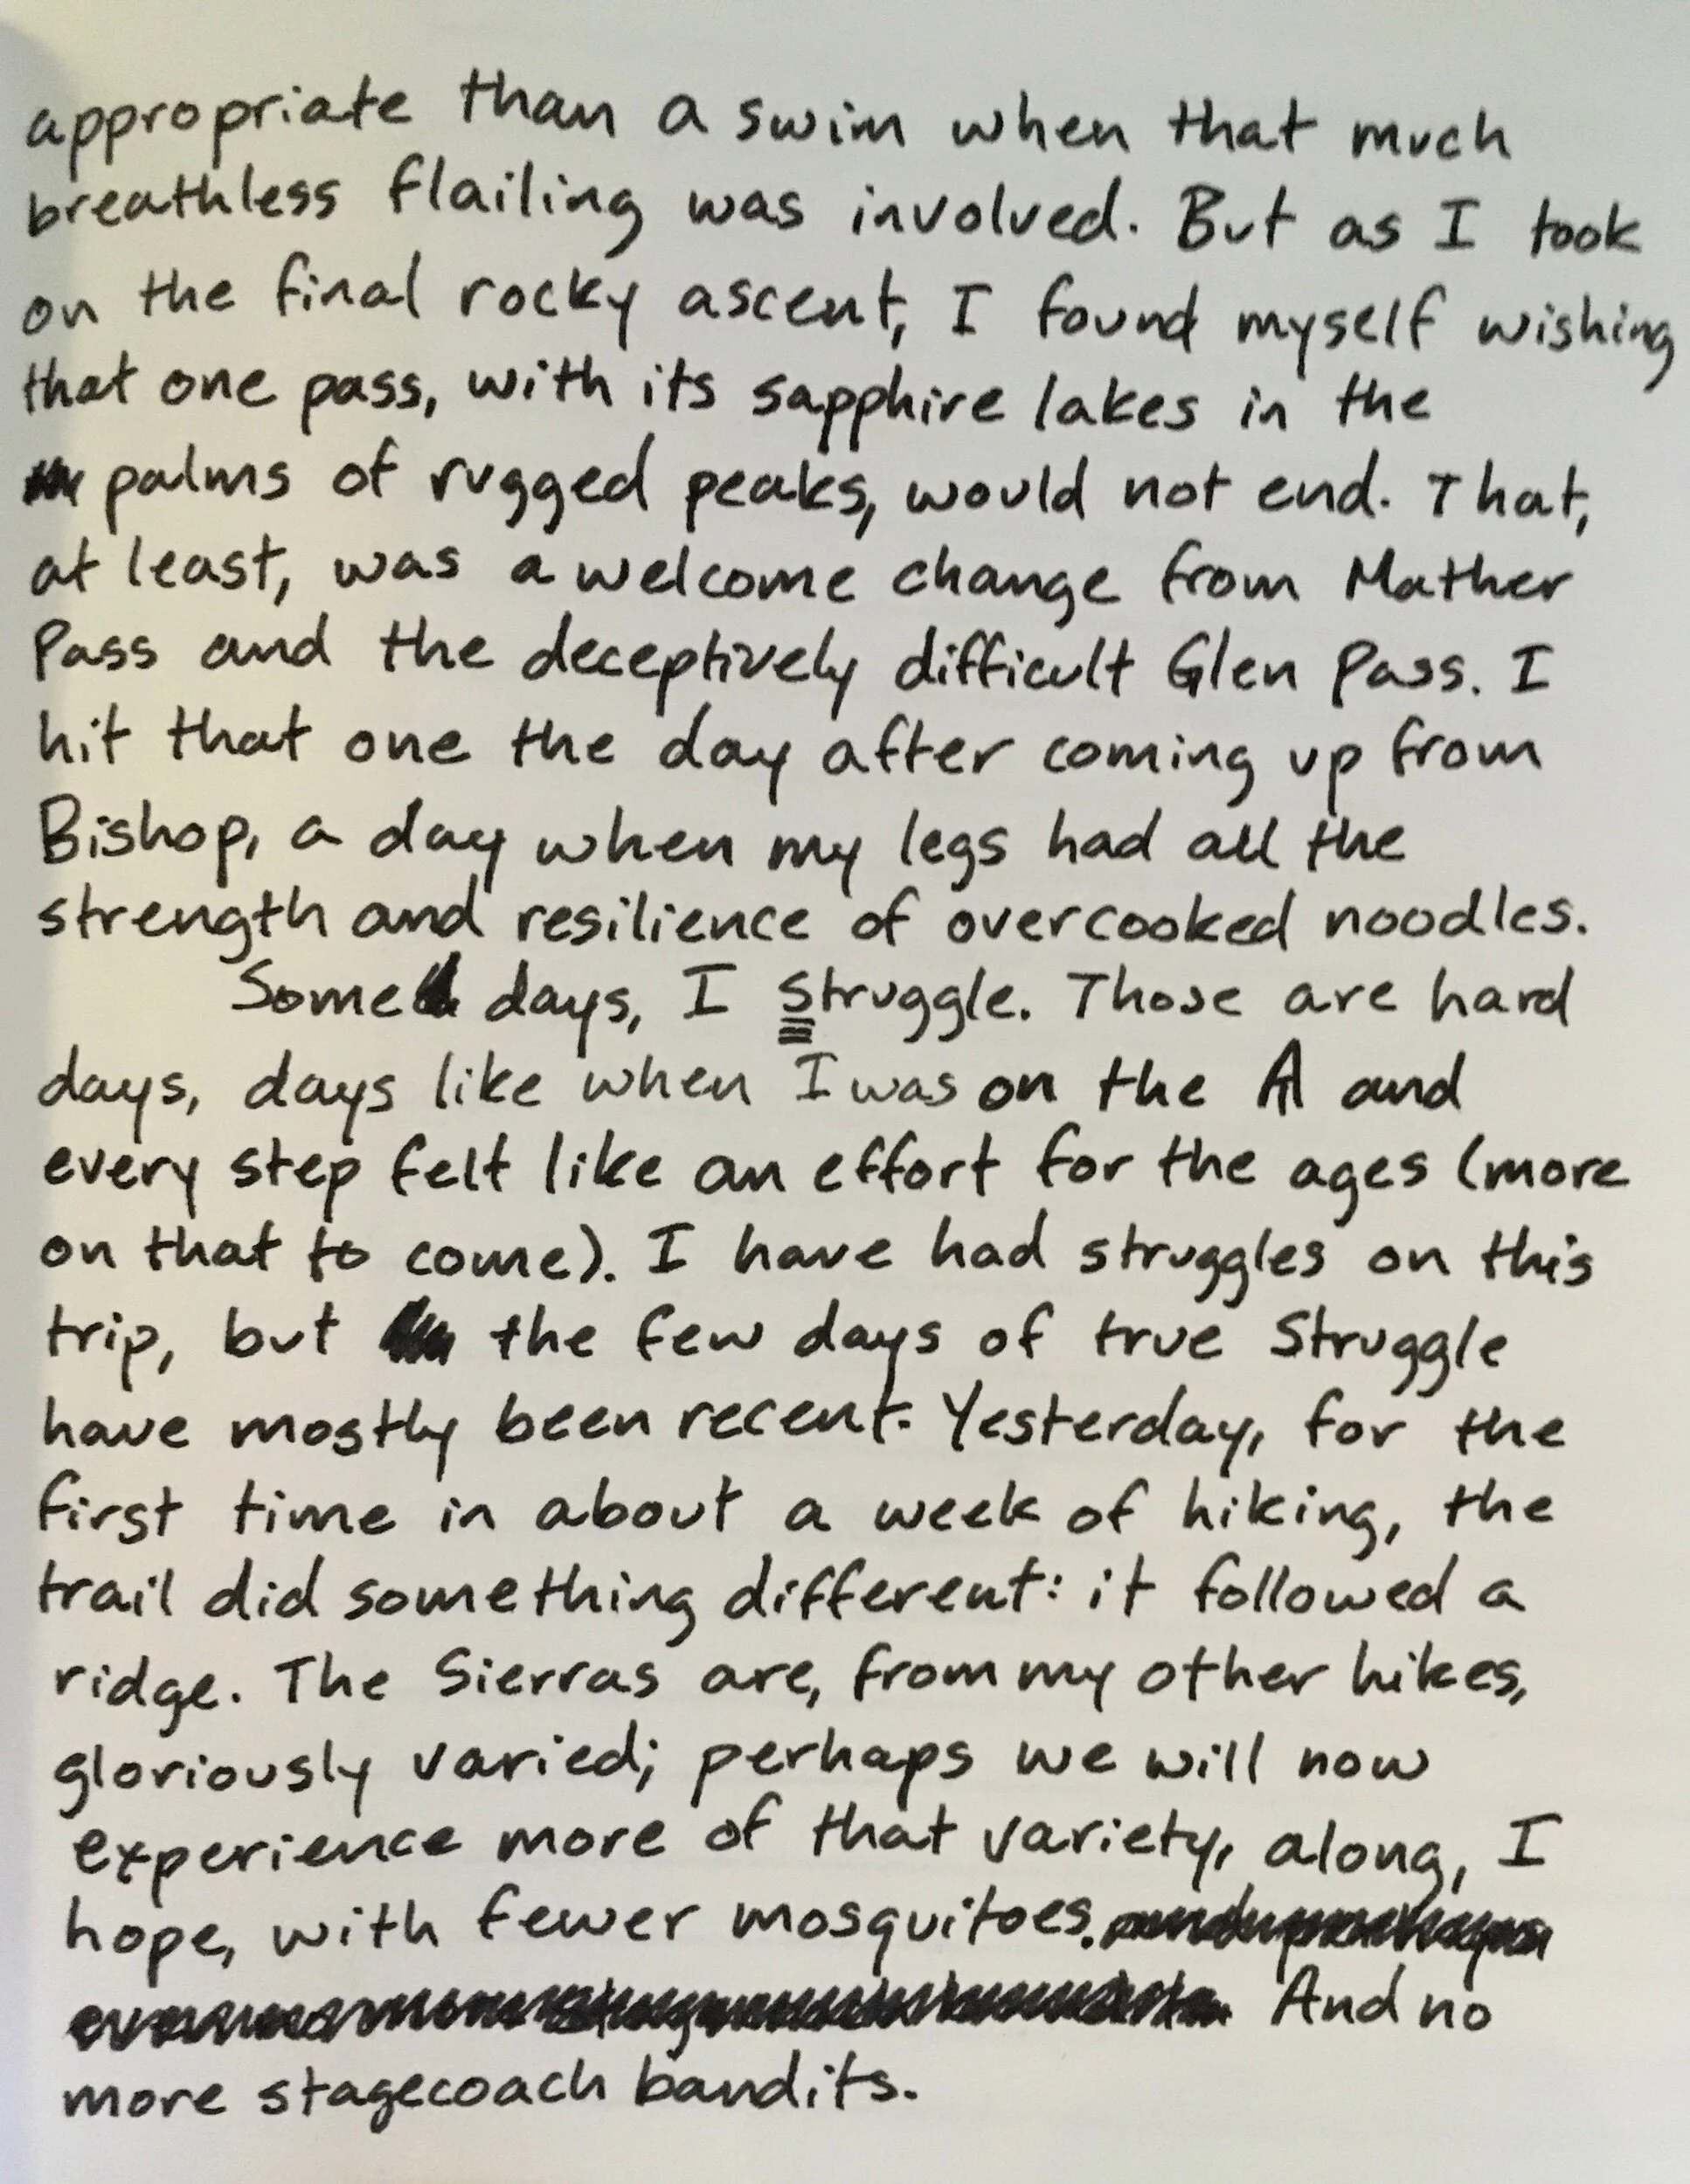 appropriate than a swim when that much
breathless flailing was involved. But as I took
on the final rocky ascent, I found myself wishing
that one pass, with its sapphire lakes in the
palms of rugged peaks, would not end. That,
at least, was a welcome change from Mather
Pass and the deceptively difficult Glen Pass. I
hit that one the day after coming up from
Bishop, a day when my legs had all the
strength and resilience of overcooked noodles.
Some days, I Struggle. Those are hard
days, days like when I was on the and
every step felt like an effort for the ages (more
on that to come). I have had struggles on this
trip, but the few days of true Struggle
have mostly been recent. Yesterday, for the
first time in about a week of hiking, the
trail did something different: it followed a
ridge. The Sierras are, from my other hikes,
gloriously varied; perhaps we will now
experience more of that variety, along, I
hope, with fewer mosquitoes.
And no
more stagecoach bandits.